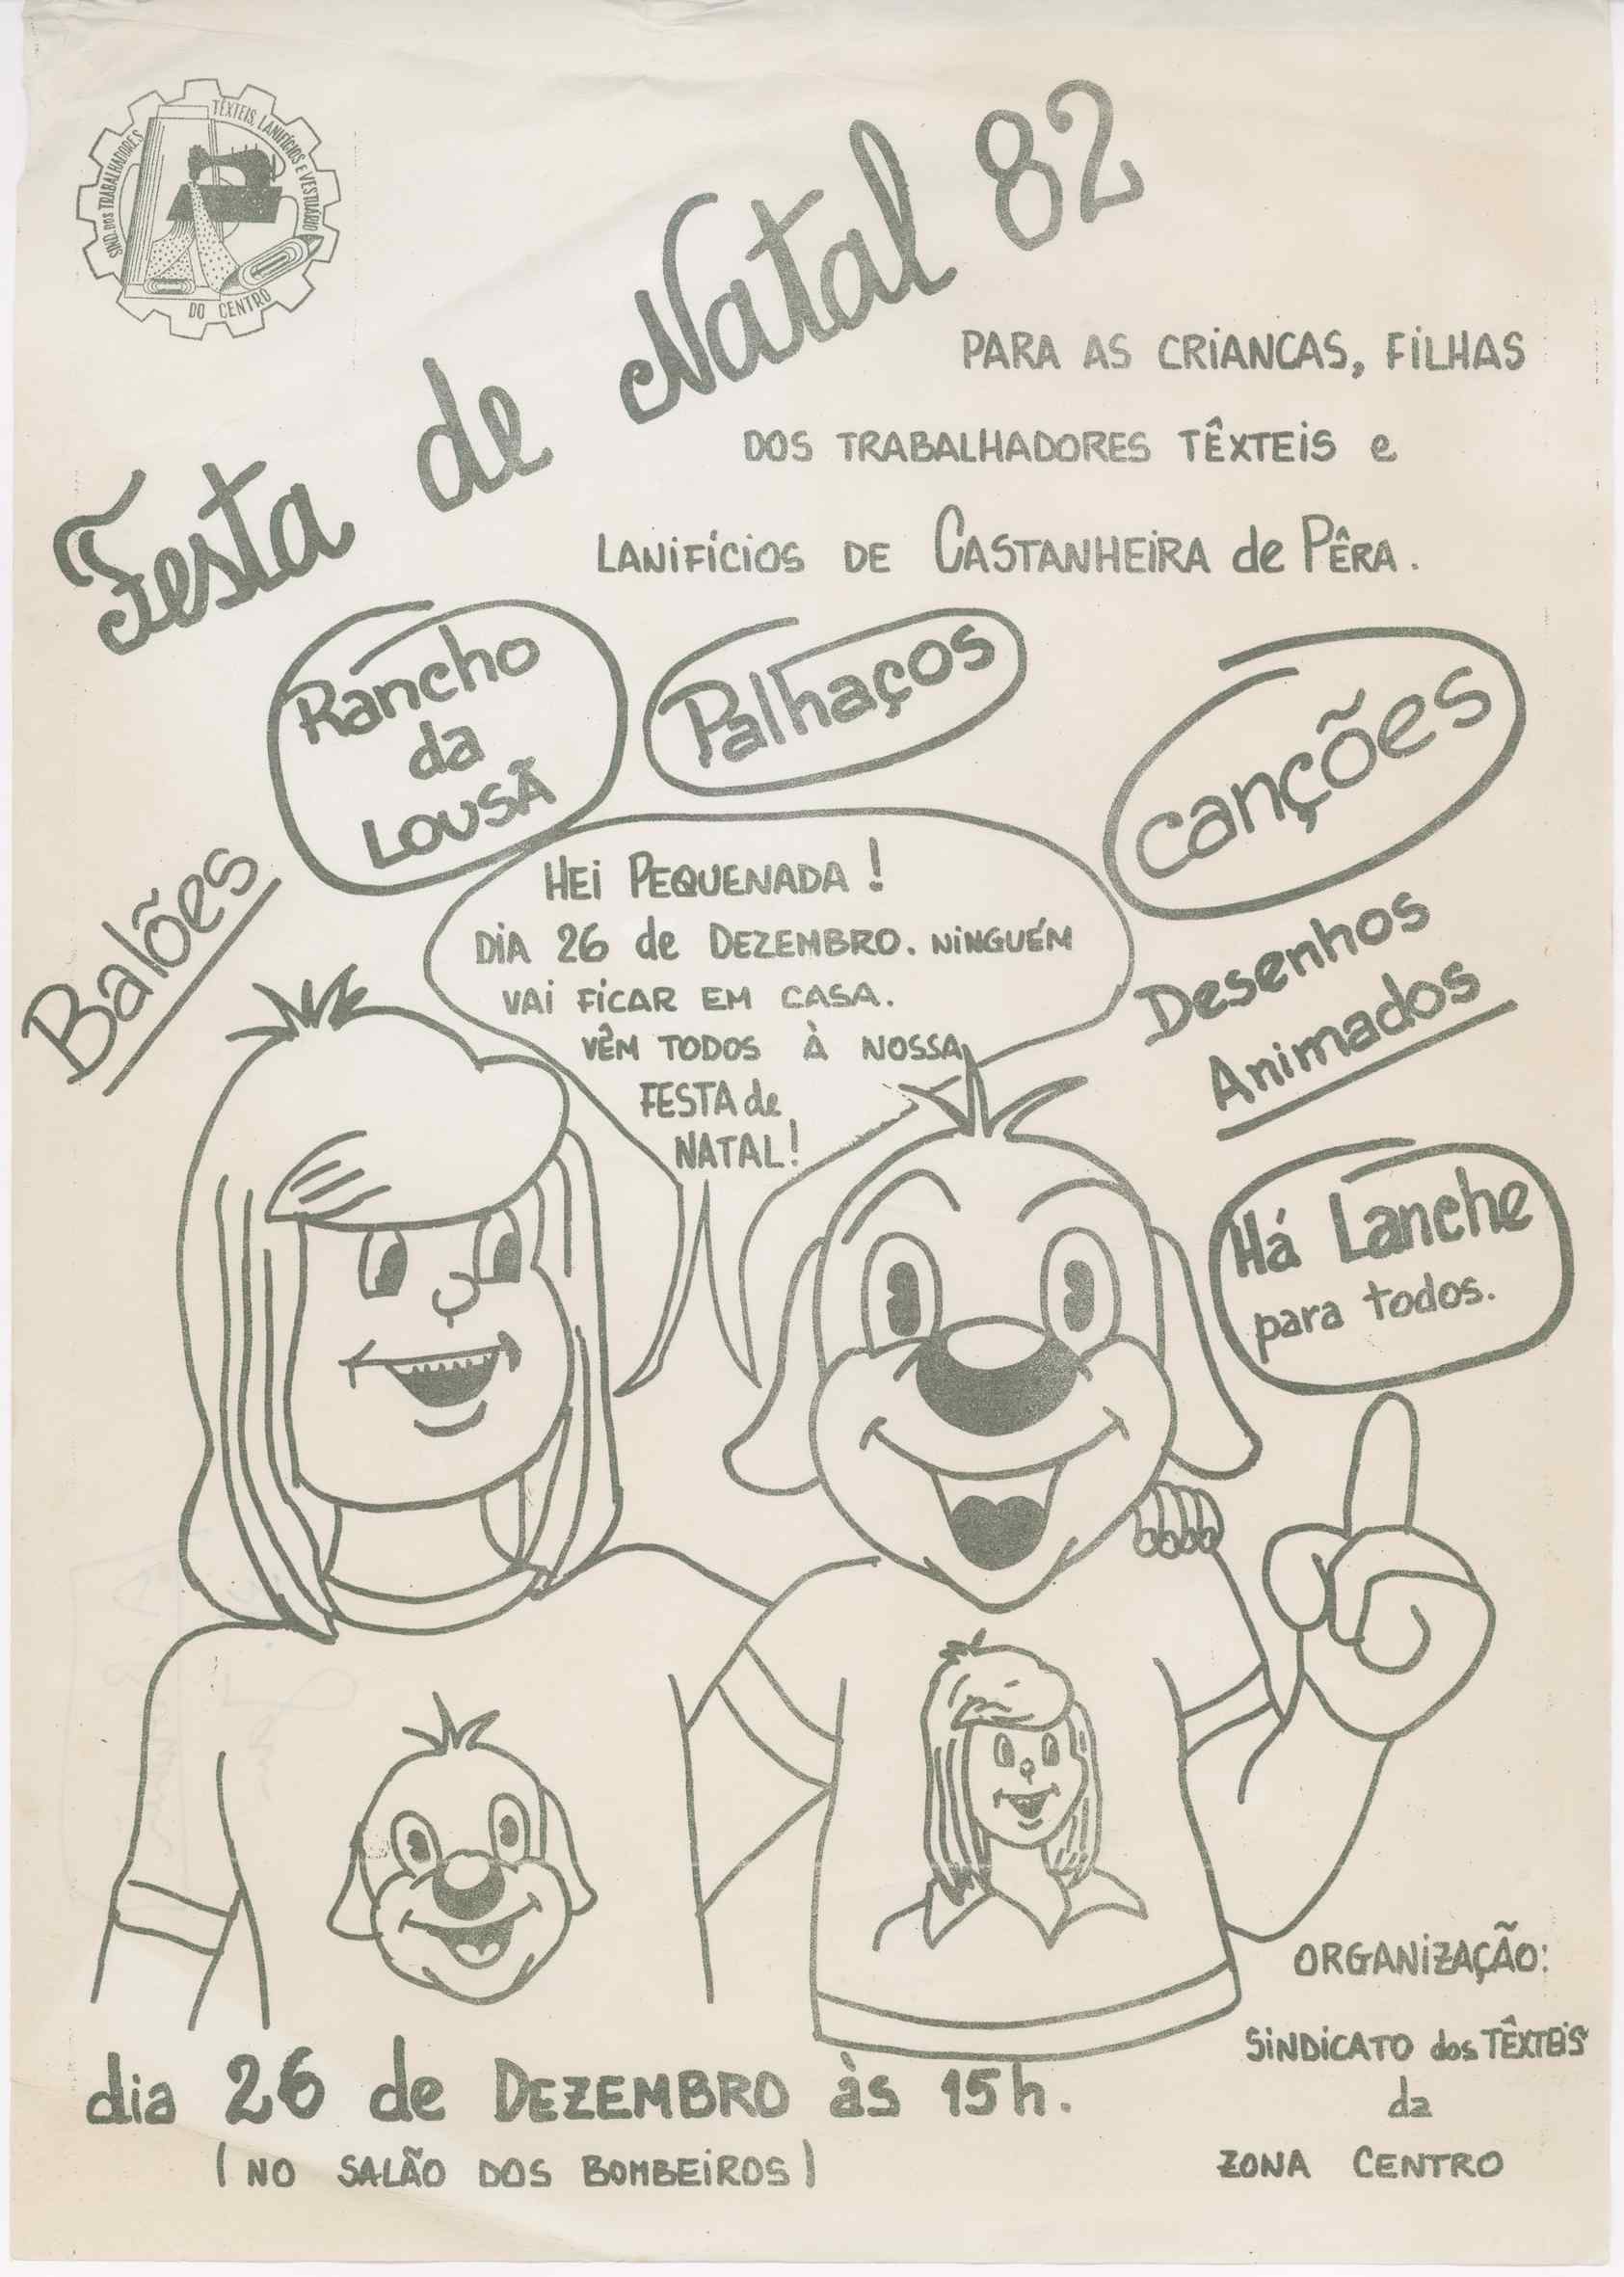 SIND. DOS TRABALHADORES TÊXTEIS, LANIFÍCIOS E VESTUÁRIO
DO CENTRO
Festa de Natal 82
PARA AS CRIANCAS, FILHAS
DOS TRABALHADORES TÊXTEIS e
LANIFÍCIOS DE CASTANHEIRA de PÊRA.
Rancho
da
LOUSÃ
Palhaços
canções
Balões
HEI PEQUENADA!
DIA 26 de DEZEMBRO. NINGUÉM
VAI FICAR EM CASA.
VÊM TODOS À NOSSA
FESTA de
NATAL!
Desenhos
Animados
Há Lanche
para todos.
ORGANIZAÇÃO:
SINDICATO dos TÊXTEIS
da
ZONA CENTRO
dia 26 de DEZEMBRO às 15h.
(NO SALÃO DOS BOMBEIROS)